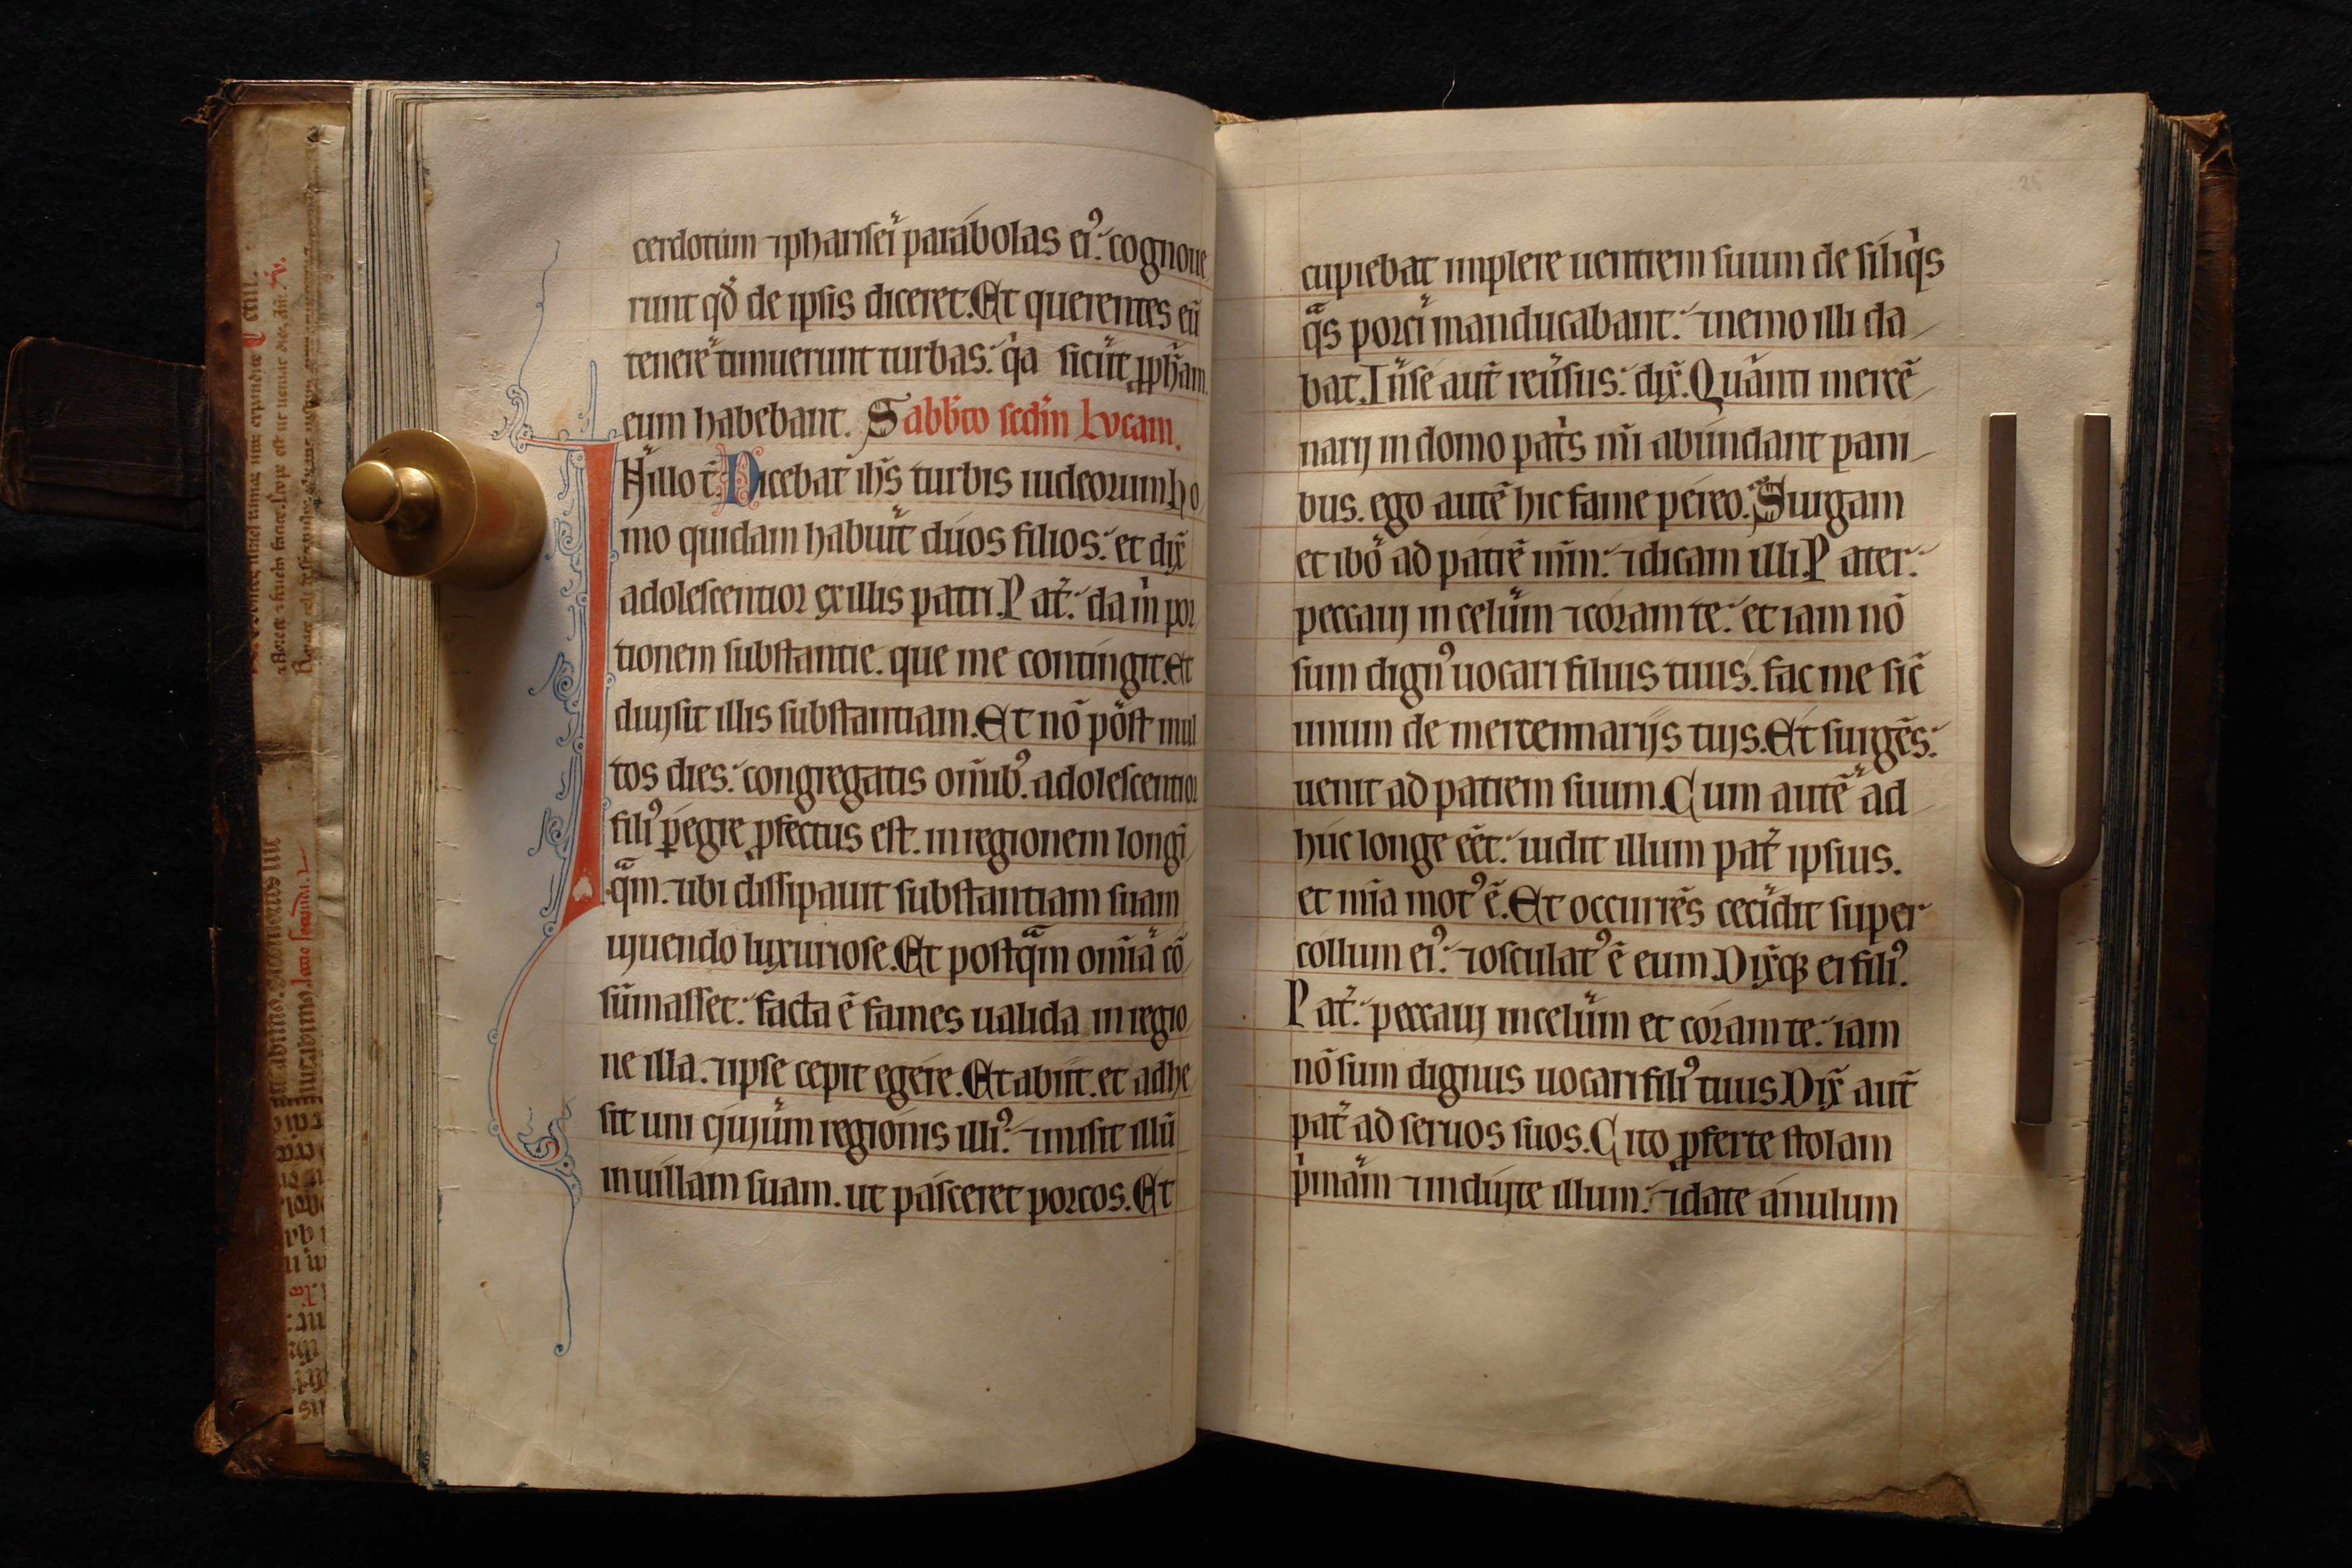 cerdotum ⁊pharisei parabolas ei⁹: cognoue
runt qđ de ipsis diceret. Et querentes eū
tenere timuerunt turbas: q̇a sicut ꝓph̄am
eum habebant. Sabb̄to sed̄m Lucam.
IN illo t̄. Dicebat ih̄s turbis iudeorum ho
mo quidam habuit duos filios: et dix̄
adolescentior ex illis patri. Pat̄: da ṁ por
tionem substantie. que me contingit. Et
diuisit illis substantiam. Et nō post mul
tos dies: congregatis om̄ib⁹. adolescentior
fili⁹ peregre ꝓfectus est. in regionem longi
qᵃm. ⁊ubi dissipauit substantiam suam
uiuendo luxuriose. Et postqᵃm om̄ia cō
sūmasset: facta ē fames ualida in regio
ne illa. ⁊ipse cepit egere. Et abiit. et adhe
sit uni ciuium regionis illi⁹: ⁊misit illū
in uillam suam. ut pasceret porcos. Et
25
cupiebat implere uentrem suum de siliq̇s
qᵃs porci manducabant: ⁊nemo illi da
bat. In se aut̄ reūsus: dix̄. Quanti mercē
narij in domo paṫs mī abundant pani
bus. ego autē hic fame pereo. Surgam
et ibo ad patrē mm̄: ⁊dicam illi. Pater:
peccaui in celum ⁊coram te: et iam nō
sum dign⁹ uocari filius tuus. fac me sic̄
unum de mercennarijs tuis. Et surgēs:
uenit ad patrem suum. Cum autē ad
huc longe eēt: uidit illum pat̄ ipsius.
et mīa mot⁹ ē. Et occurrēs cecidit super
collum ei⁹: ⁊osculat⁹ ē eum. Dix̄qꝫ ei fili⁹.
Pat̄: peccaui in celum et coram te: iam
nō sum dignus uocari fili⁹ tuus. Dix̄ aut̄
pat̄ ad seruos suos. Cito ꝓferte stolam
ṗmam ⁊induite illum: ⁊date anulum